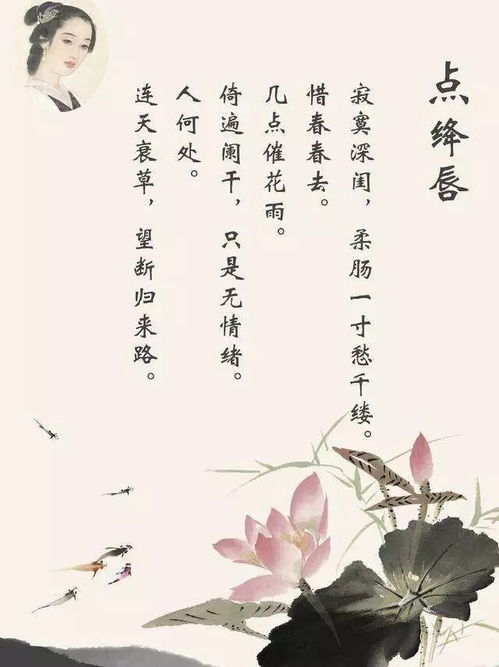 点绛唇
寂寞深闺，柔肠一寸愁千缕。
惜春春去。
几点催花雨。
倚遍阑干，只是无情绪。
人何处。
连天衰草，望断归来路。